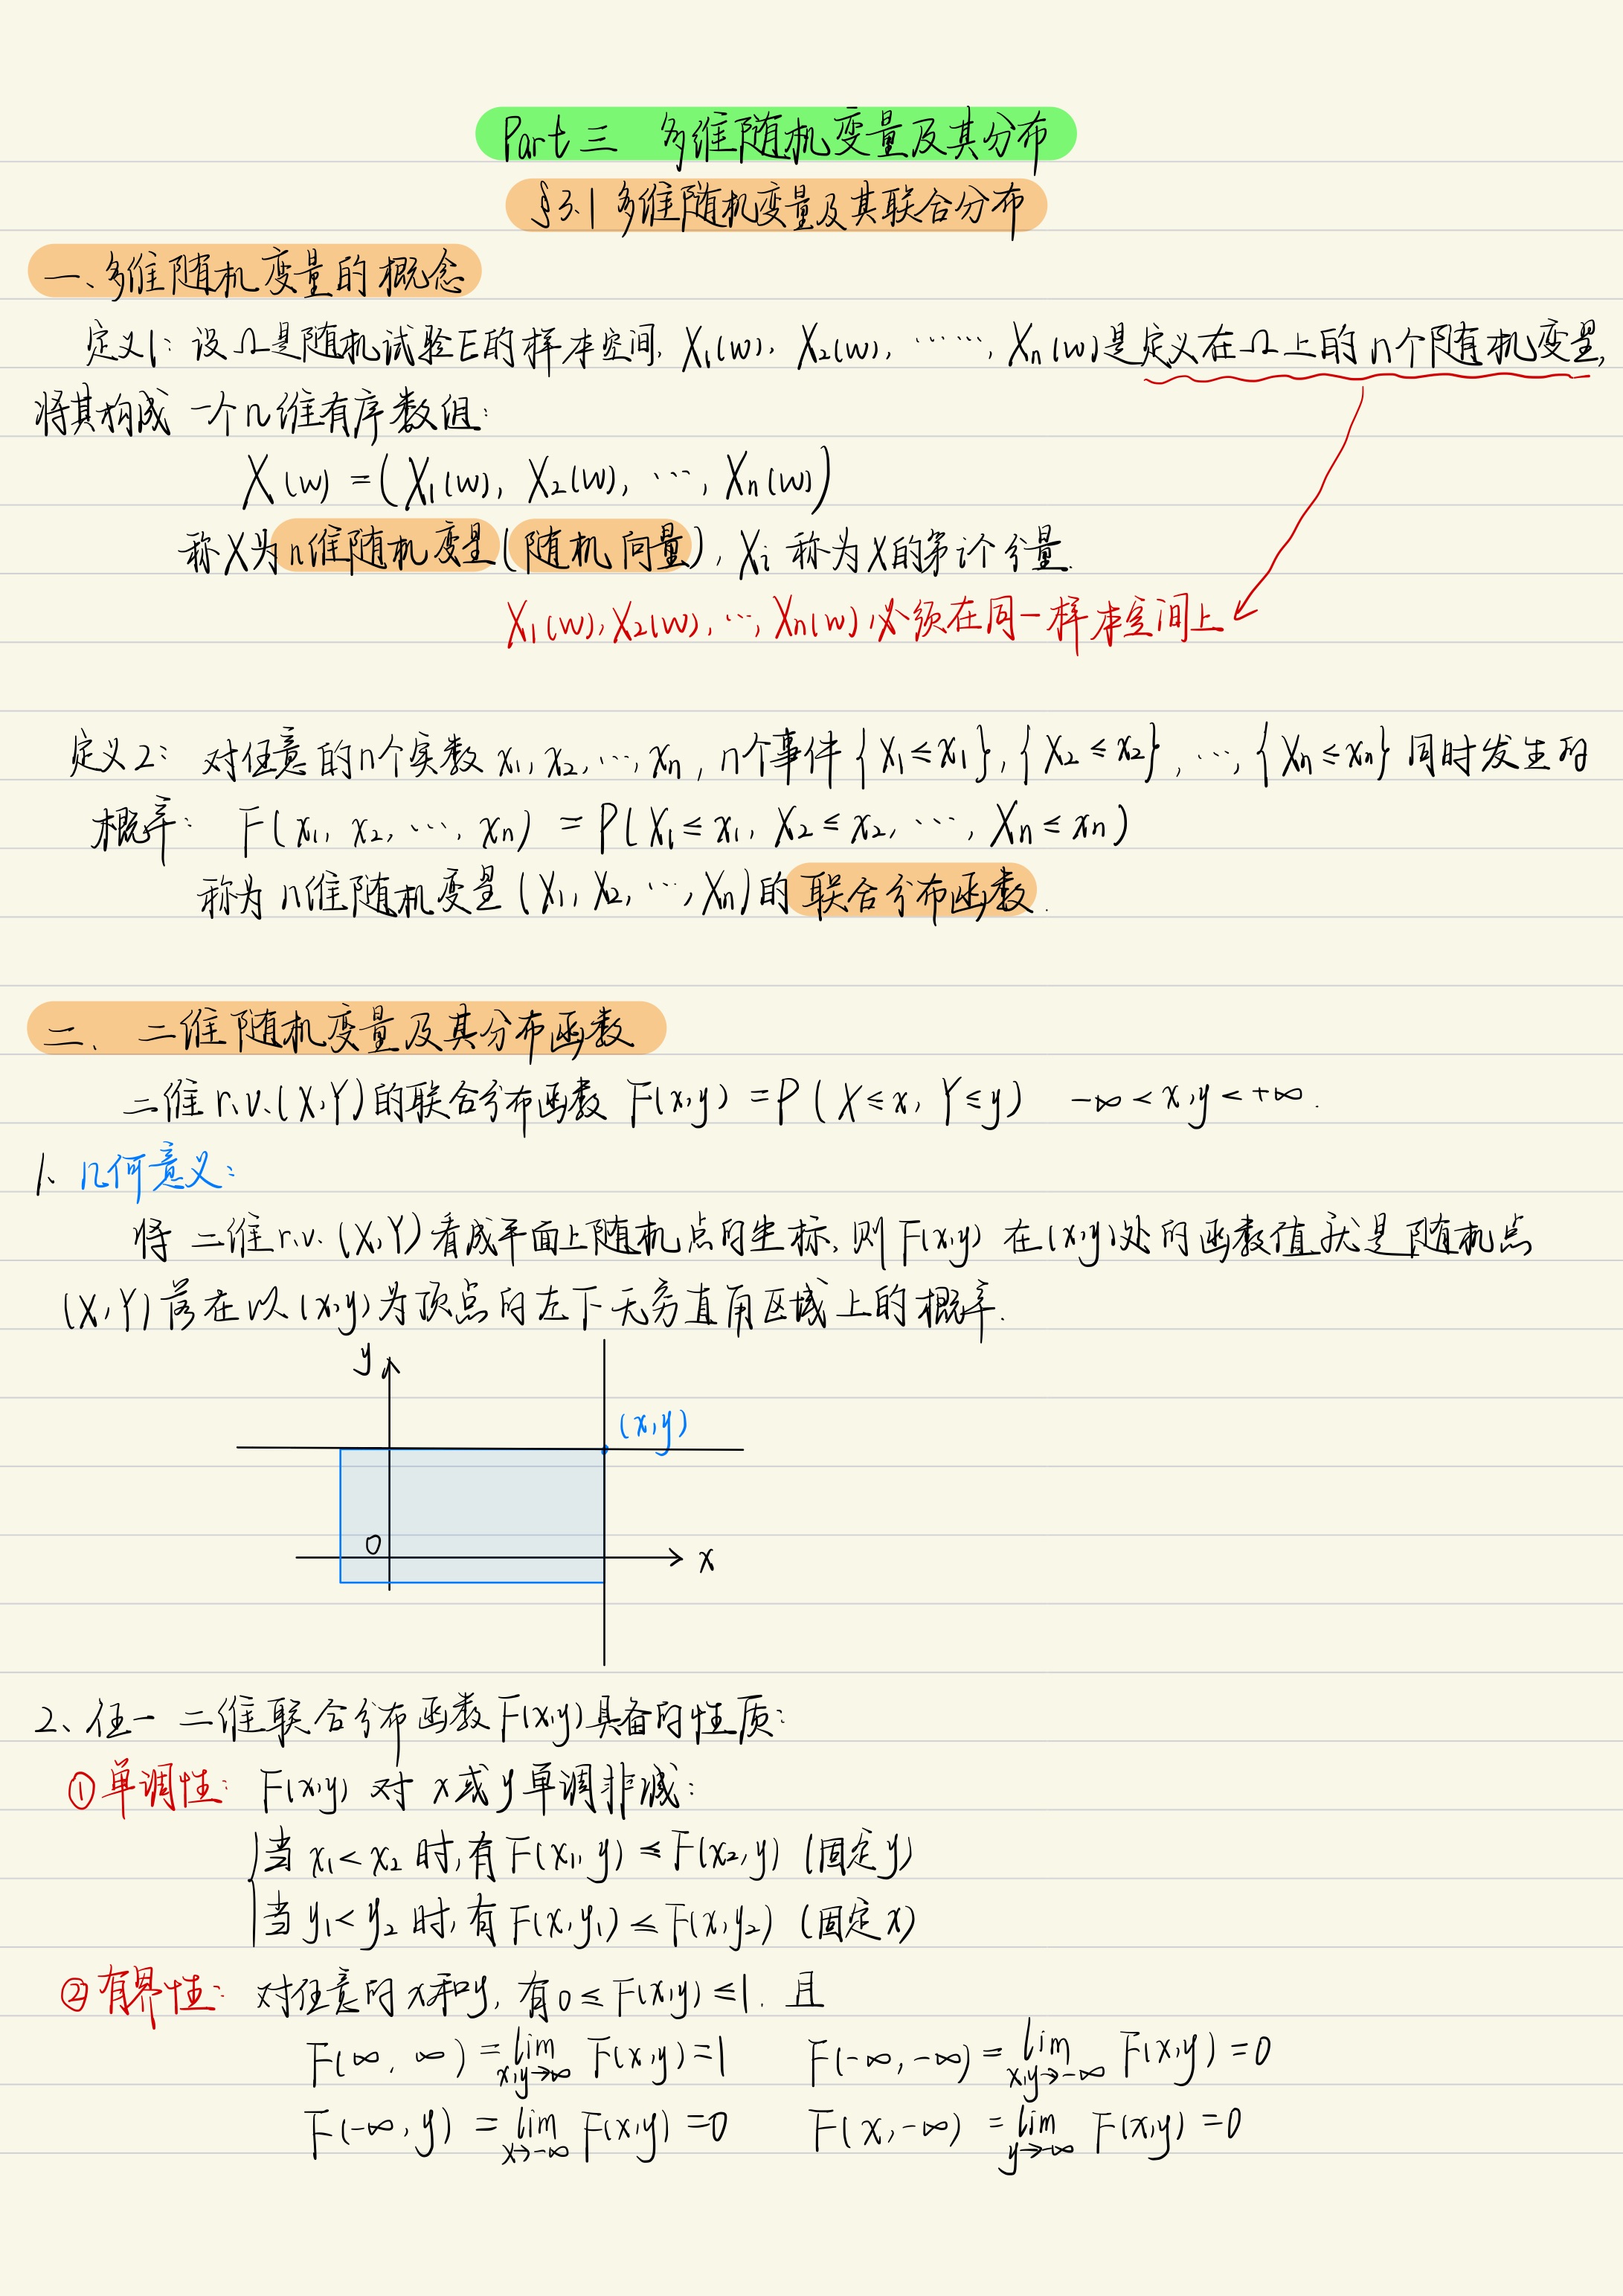 Part三 多维随机变量及其分布
§3.1 多维随机变量及其联合分布
一、多维随机变量的概念
定义1: 设Ω是随机试验E的样本空间, X₁(w), X₂(w), ……, Xₙ(w)是定义在Ω上的n个随机变量,
将其构成一个n维有序数组:
X(w) = (X₁(w), X₂(w), …, Xₙ(w))
称X为n维随机变量(随机向量), Xᵢ 称为X的第i个分量.
X₁(w), X₂(w), …, Xₙ(w)必须在同一样本空间上
定义2: 对任意的n个实数 x₁, x₂, …, xₙ, n个事件 {X₁≤x₁}, {X₂≤x₂}, …, {Xₙ≤xₙ} 同时发生的
概率: F(x₁, x₂, …, xₙ) = P(X₁≤x₁, X₂≤x₂, …, Xₙ≤xₙ)
称为n维随机变量(X₁, X₂, …, Xₙ)的联合分布函数.
二、二维随机变量及其分布函数
二维r.v.(X,Y)的联合分布函数 F(x,y) = P(X≤x, Y≤y) -∞<x,y<+∞.
1、几何意义:
将二维r.v.(X,Y)看成平面上随机点的坐标, 则F(x,y)在(x,y)处的函数值就是随机点
(X,Y)落在以(x,y)为顶点的左下无穷直角区域上的概率.
y
(x,y)
0
x
2、任一二维联合分布函数F(x,y)具备的性质:
①单调性: F(x,y) 对 x或y单调非减:
当 x₁<x₂ 时,有F(x₁,y) ≤ F(x₂,y) (固定y)
当 y₁<y₂ 时,有F(x,y₁) ≤ F(x,y₂) (固定x)
②有界性: 对任意的x和y, 有0≤F(x,y)≤1. 且
F(∞, ∞) = lim x,y→∞ F(x,y)=1 F(-∞,-∞) = lim x,y→-∞ F(x,y)=0
F(-∞, y) = lim x→-∞ F(x,y)=0 F(x,-∞) = lim y→-∞ F(x,y)=0